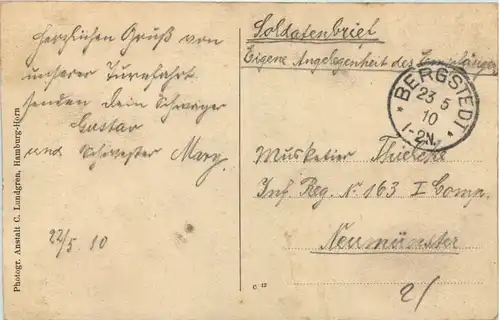 Herzlichen Gruß von
unserer Turnfahrt
senden Dein Schwager
Gustav
und Schwester Mary.
22/5. 10
Photogr. Anstalt C. Landgren, Hamburg-Horn
Soldatenbrief
Eigene Angelegenheit des Empfängers
BERGSTEDT
23 5
10
1-2N.
Musketier
Inf. Reg. No 163 I Comp.
Neumünster
C 12